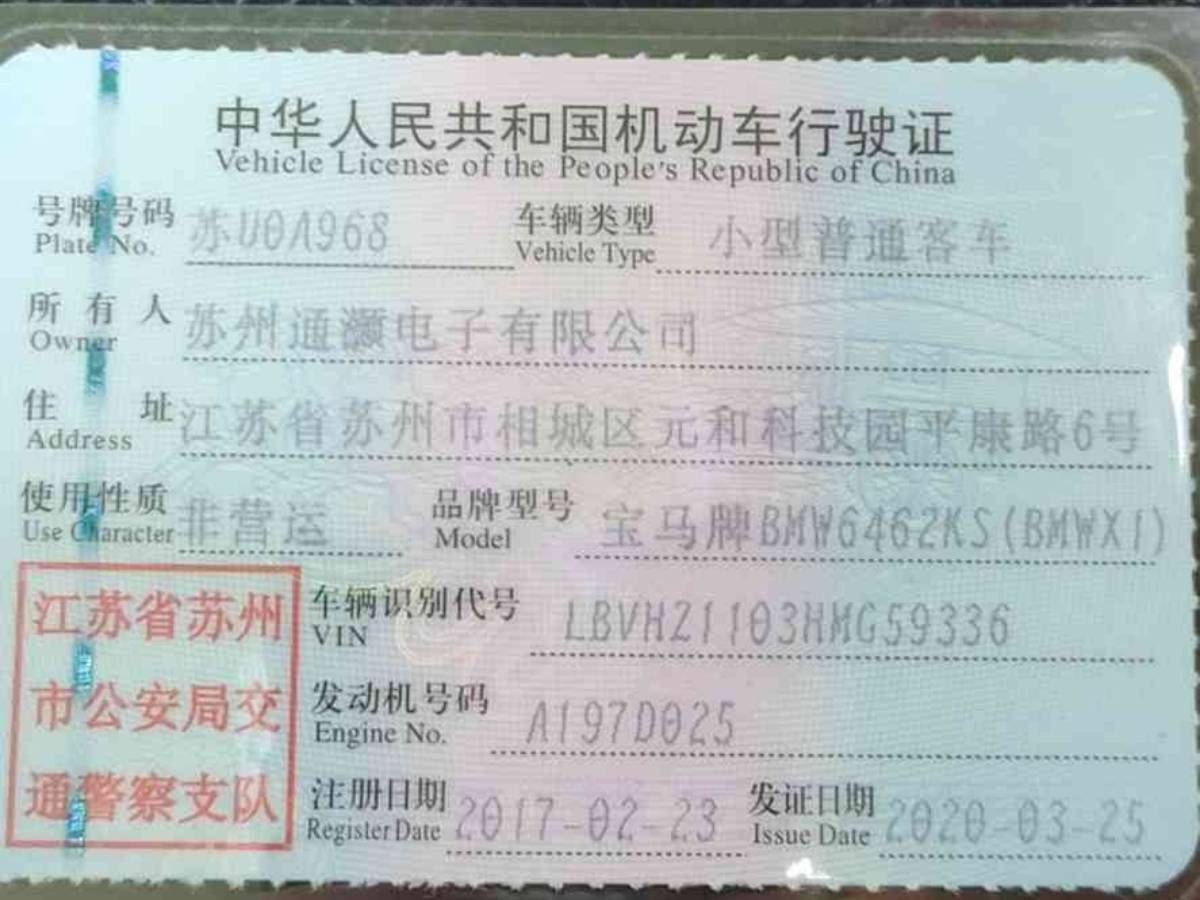 中华人民共和国机动车行驶证
Vehicle License of the People's Republic of China
号牌号码 苏U0A968 车辆类型 小型普通客车
Plate No. Vehicle Type
所有人 苏州通灏电子有限公司
Owner
住址 江苏省苏州市相城区元和科技园平康路6号
Address
使用性质 非营运 品牌型号 宝马牌BMW6462KS(BMWX1)
Use Character Model
江苏省苏州
市公安局交
通警察支队
车辆识别代号 LBVHZ1103HMG59336
VIN
发动机号码 A197D025
Engine No.
注册日期 2017-02-23 发证日期 2020-03-25
Register Date Issue Date